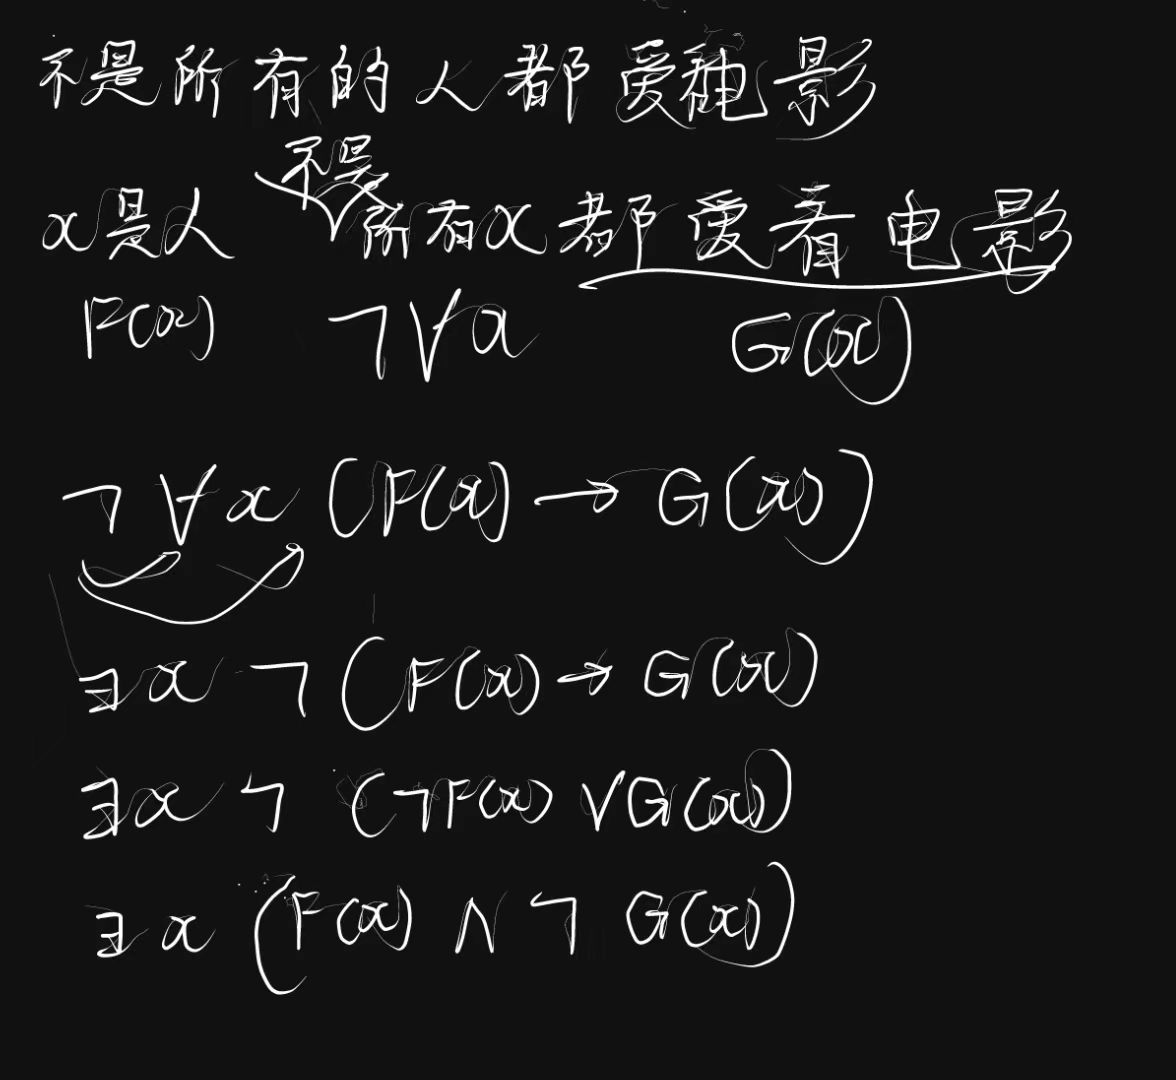 不是所有的人都爱看电影
不是
x是人 所有x都爱看电影
F(x) ¬∀x G(x)
¬∀x(F(x)→G(x))
∃x¬(F(x)→G(x)
∃x¬(¬F(x)∨G(x))
∃x(F(x)∧¬G(x))